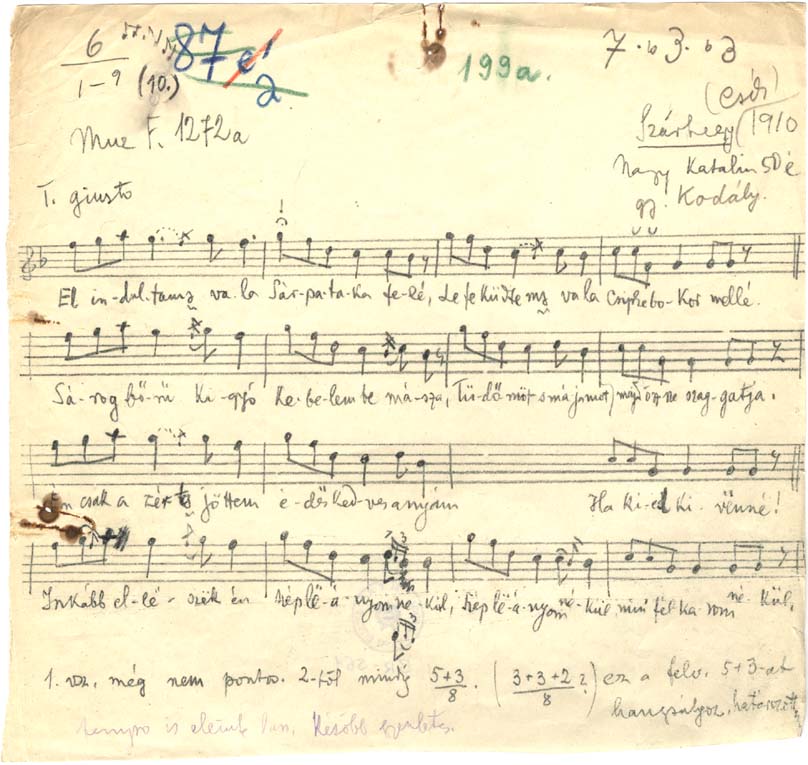 6
1-9 (10.)
87
2
199a.
7. b3. b3
(Csík)
Szárhegy 1910
Muz F. 1272a
Nagy Katalin 50 é
gy. Kodály.
T. giusto
El in-dul-tam va-la Sár-pa-ta-ka fe-lé, Le fe küdtem vala Csipkebo-kor mellé.
Sá-rog bő-rű ki-gyó Ke-be-lembe má-sza, Tü-dőmöt s májamot majd szag-gatja.
Én csak a jöttem é-dös ked-ves anyám Ha ki-ed ki-vënné!
Inkább el-lé-szëk én szép lë-á-nyom né-kül, szép lë-á-nyom né-kül mint fél ka-rom né-kül,
1. vsz. még nem pontos. 2-től mindig 5+3/8. (3+3+2/8 ?) ez a felv. 5+3-at
hangsúlyoz, határozott
is eleinte Később